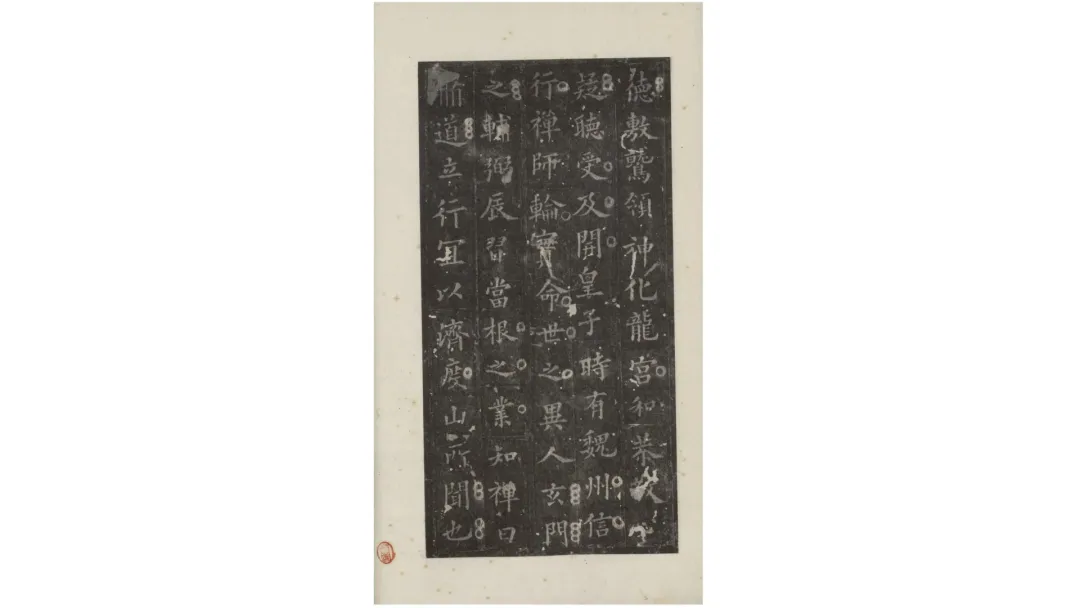 德敷鷲領神化龍宮和恭
疑聽受及開皇子時有魏州信
行禪師輪實命世之異人玄門
之輔弼辰習當根之業知禪曰
道立行宜以濟度山所聞也